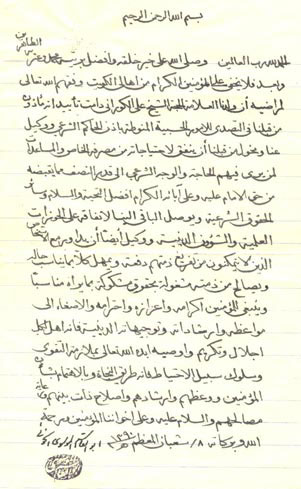 بسم الله الرحمن الرحيم
الطاهرين
الحمد لله رب العالمين وصلى الله على خير خلقه وأفضل بريته محمد وعترته
وبعد فلا يخفى على المؤمنين الكرام من أهالي الكويت وفقهم الله تعالى
لمراضيه أن ولدنا العلامة الحجة الشيخ علي الكوراني دامت تأييداته مأذون
من قبلنا في التصدي للأمور الحسبية المنوطة بإذن الحاكم الشرعي ووكيل
عنا ومخول من قبلنا أن ينفق لاحتياجاته من مصرفه الخاص والمساعدة
لمن يرى فيهم الحاجة والوجه الشرعي إلى قدر النصف مما يقبضه
من حق الإمام عليه وعلى آبائه الكرام أفضل التحية والسلام وسائر
الحقوق الشرعية ويوصل الباقي إلينا لإنفاقه على الحوزات
العلمية والشؤون الدينية ووكيل أيضا أن يداور مع الأشخاص
الذين لا يتمكنون من تفريغ ذمتهم دفعة ويمهل كلا بما يناسب حاله
ويصالح من ذمته مشغولة بحقوق مشكوكة بما يراه مناسبا
وينبغي للمؤمنين إكرامه وإعزازه واحترامه والإصغاء إلى
مواعظه وإرشاداته وتوجيهاته الدينية فإنه أهل لكل
إجلال وتكريم وأوصيه أيده الله تعالى بملازمة التقوى
وسلوك سبيل الاحتياط فإنه طريق النجاة وبالاهتمام بشؤون
المؤمنين ووعظهم وإرشادهم وإصلاح ذات بينهم
مصالحهم والسلام عليه وعلى إخواننا المؤمنين ورحمة
الله وبركاته ٨/ شعبان المعظم ١٣٩٠ أبو القاسم الموسوي الخوئي